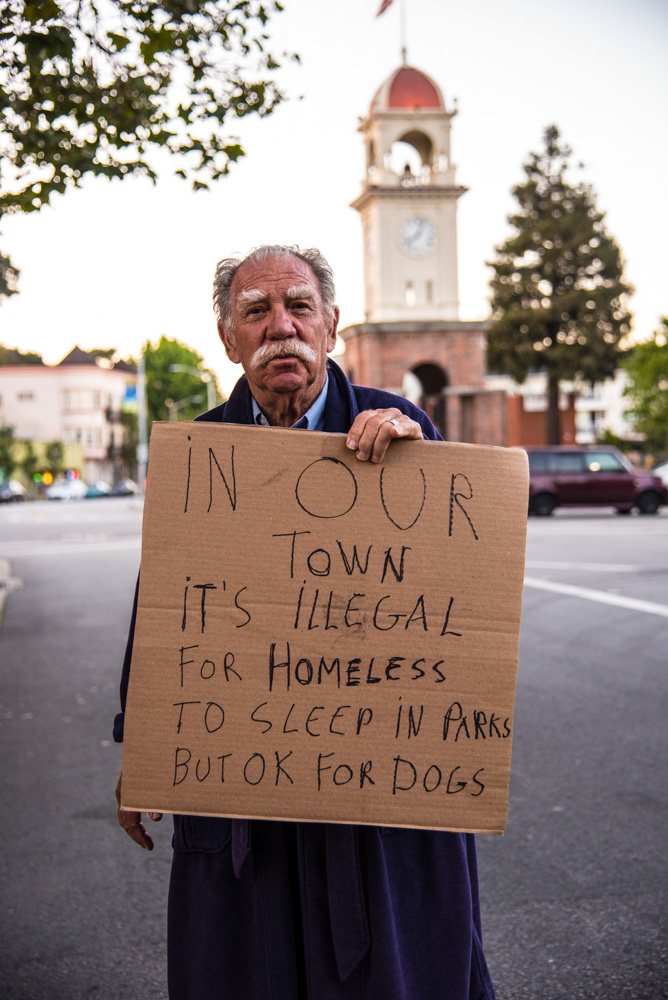 iN OUR
TOWN
iT'S iLLEGAL
FOR HOMELESS
TO SLEEP iN PARKS
BUT OK FOR DOGS